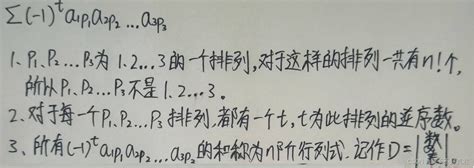 ∑(-1)^t a₁p₁a₂p₂…a₃p₃
1、P₁、P₂…P₃为1.2…3的一个排列,对于这样的排列一共有n!个,
所以P₁、P₂…P₃不是1.2…3。
2、对于每一个P₁、P₂…P₃排列,都有一个t,t为此排列的逆序数。
3、所有(-1)^t a₁p₁a₂p₂…a₃p₃的和称为n阶行列式,记作D=|数|